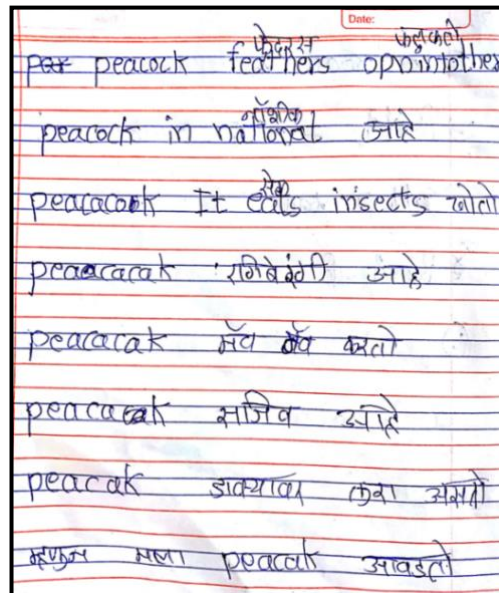 Date:
फेदरस फुलकतो
peacock feathers opnintother
नॅशनिक
peacock in national आहे
peacacok It eats insects खातो
peacacak रंगिबेरंगी आहे
peacacak मॅव मॅव करतो
peacacak सजिव आहे
peacak डोक्यावर तुरा असतो
म्हणुन मला peacak आवडतो